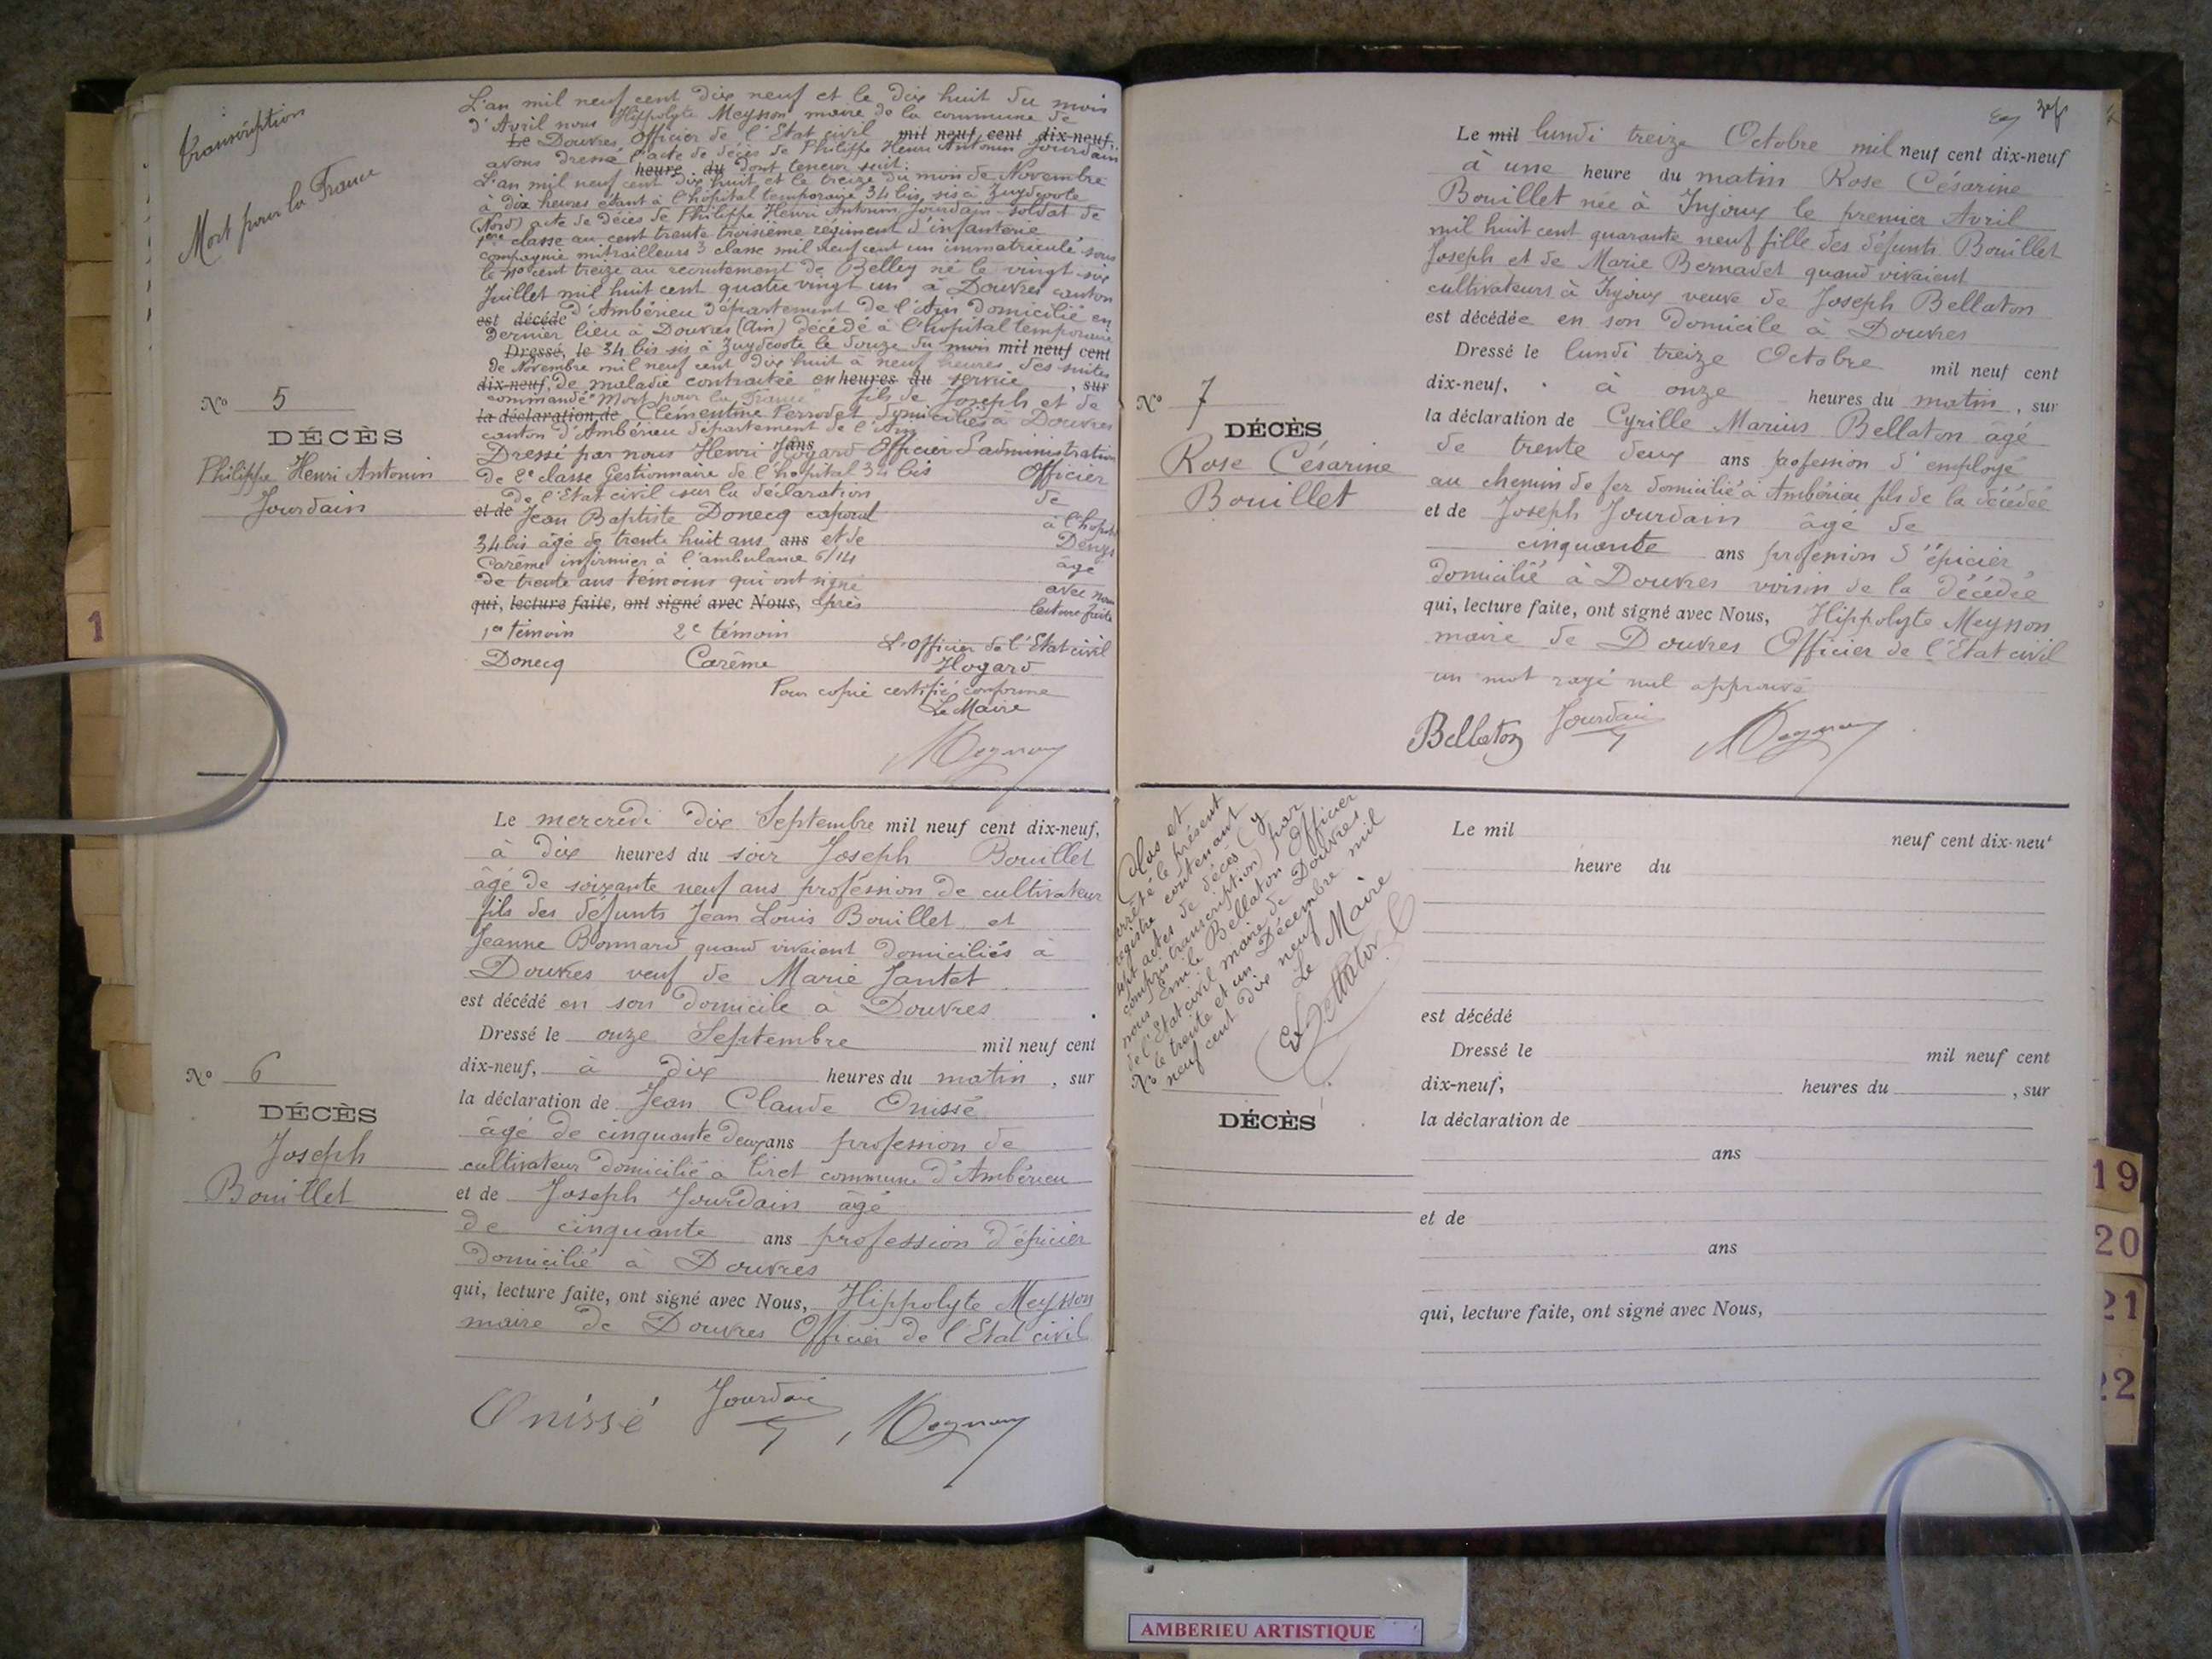 transcription
Mort pour la France
L'an mil neuf cent dix neuf et le dix huit du mois
d'Avril nous Hippolyte Meysson maire de la commune de
Le Douvres Officier de l'Etat civil mil neuf cent dix-neuf,
avons dressé l'acte de décès de Philippe Henri Antonin Jourdain
heure du dont teneur suit:
L'an mil neuf cent dix huit et le treize du mois de Novembre
à dix heures étant à l'hôpital temporaire 34 bis, sis à Zuydcoote
(Nord) acte de décès de Philippe Henri Antonin Jourdain soldat de
1ère classe au cent trente troisième régiment d'infanterie
compagnie mitrailleurs 3 classe mil neuf cent un immatriculé sous
le no cent treize au recrutement de Belley né le vingt six
Juillet mil huit cent quatre vingt un à Douvres canton
d'Ambérieu département de l'Ain domicilié en
est décédé
dernier lieu à Douvres (Ain) décédé à l'hôpital temporaire
Dressé, le 34 bis sis à Zuydcoote le douze du mois mil neuf cent
de Novembre mil neuf cent dix huit à neuf heures des suites
dix-neuf, de maladie contractée en heures du service, sur
commandé "Mort pour la France" fils de Joseph et de
la déclaration de Clémentine Perrodet domiciliés à Douvres
canton d'Ambérieu département de l'Ain
ans
Dressé par nous Henri Hogard Officier d'administration
de 2e classe Gestionnaire de l'hôpital 34 bis Officier
de l'Etat civil sur la déclaration de
et de Jean Baptiste Donecq caporal à l'hopital
34 bis âgé de trente huit ans ans et de Denys
Carême infirmier à l'ambulance 6/14 âgé
de trente ans témoins qui ont signé avec nous
qui, lecture faite, ont signé avec Nous, après lecture faite
1er témoin 2e témoin L'Officier de l'Etat civil
Donecq Carême Hogard
Pour copie certifié conforme
Le Maire
Meysson
No 5
DÉCÈS
Philippe Henri Antonin
Jourdain
Le mercredi dix Septembre mil neuf cent dix-neuf,
à dix heures du soir Joseph Bouillet
âgé de soixante neuf ans profession de cultivateur
fils des défunts Jean Louis Bouillet et
Jeanne Bonnard quand vivaient domiciliés à
Douvres veuf de Marie Jantet
est décédé en son domicile à Douvres
Dressé le onze Septembre mil neuf cent
dix-neuf, à dix heures du matin, sur
la déclaration de Jean Claude Onissé
âgé de cinquante deux ans profession de
cultivateur domicilié à Tiret commune d'Ambérieu
et de Joseph Jourdain âgé
de cinquante ans profession d'épicier
domicilié à Douvres
qui, lecture faite, ont signé avec Nous, Hippolyte Meysson
maire de Douvres Officier de l'Etat civil
Onissé Jourdain Meysson
No 6
DÉCÈS
Joseph
Bouillet
Le mil lundi treize Octobre mil neuf cent dix-neuf
à une heure du matin Rose Césarine
Bouillet née à Injoux le premier Avril
mil huit cent quarante neuf fille des défunts Bouillet
Joseph et de Marie Bernadet quand vivaient
cultivateurs à Injoux veuve de Joseph Bellaton
est décédée en son domicile à Douvres
Dressé le lundi treize Octobre mil neuf cent
dix-neuf, à onze heures du matin, sur
la déclaration de Cyrille Marius Bellaton âgé
de trente deux ans profession d'employé
au chemin de fer domicilié à Ambérieu fils de la décédée
et de Joseph Jourdain âgé de
cinquante ans profession d'épicier
domicilié à Douvres voisin de la décédée
qui, lecture faite, ont signé avec Nous, Hippolyte Meysson
maire de Douvres Officier de l'Etat civil
un mot rayé nul approuvé
Bellaton Jourdain Meysson
No 7
DÉCÈS
Rose Césarine
Bouillet
Clos et
arrêté le présent
registre contenant
sept actes de décès (y
compris transcription) par
nous Emile Bellaton Officier
de l'Etat civil maire de Douvres
le trente et un Décembre mil
neuf cent dix neuf
Le Maire
E Bellaton
No
DÉCÈS
Le mil neuf cent dix-neuf
heure du
est décédé
Dressé le mil neuf cent
dix-neuf, heures du , sur
la déclaration de
ans
et de
ans
qui, lecture faite, ont signé avec Nous,
1
19
20
21
22
AMBERIEU ARTISTIQUE